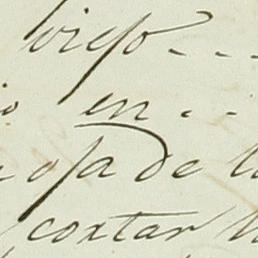 viejo - - -
en - -
osa de l
cortar l